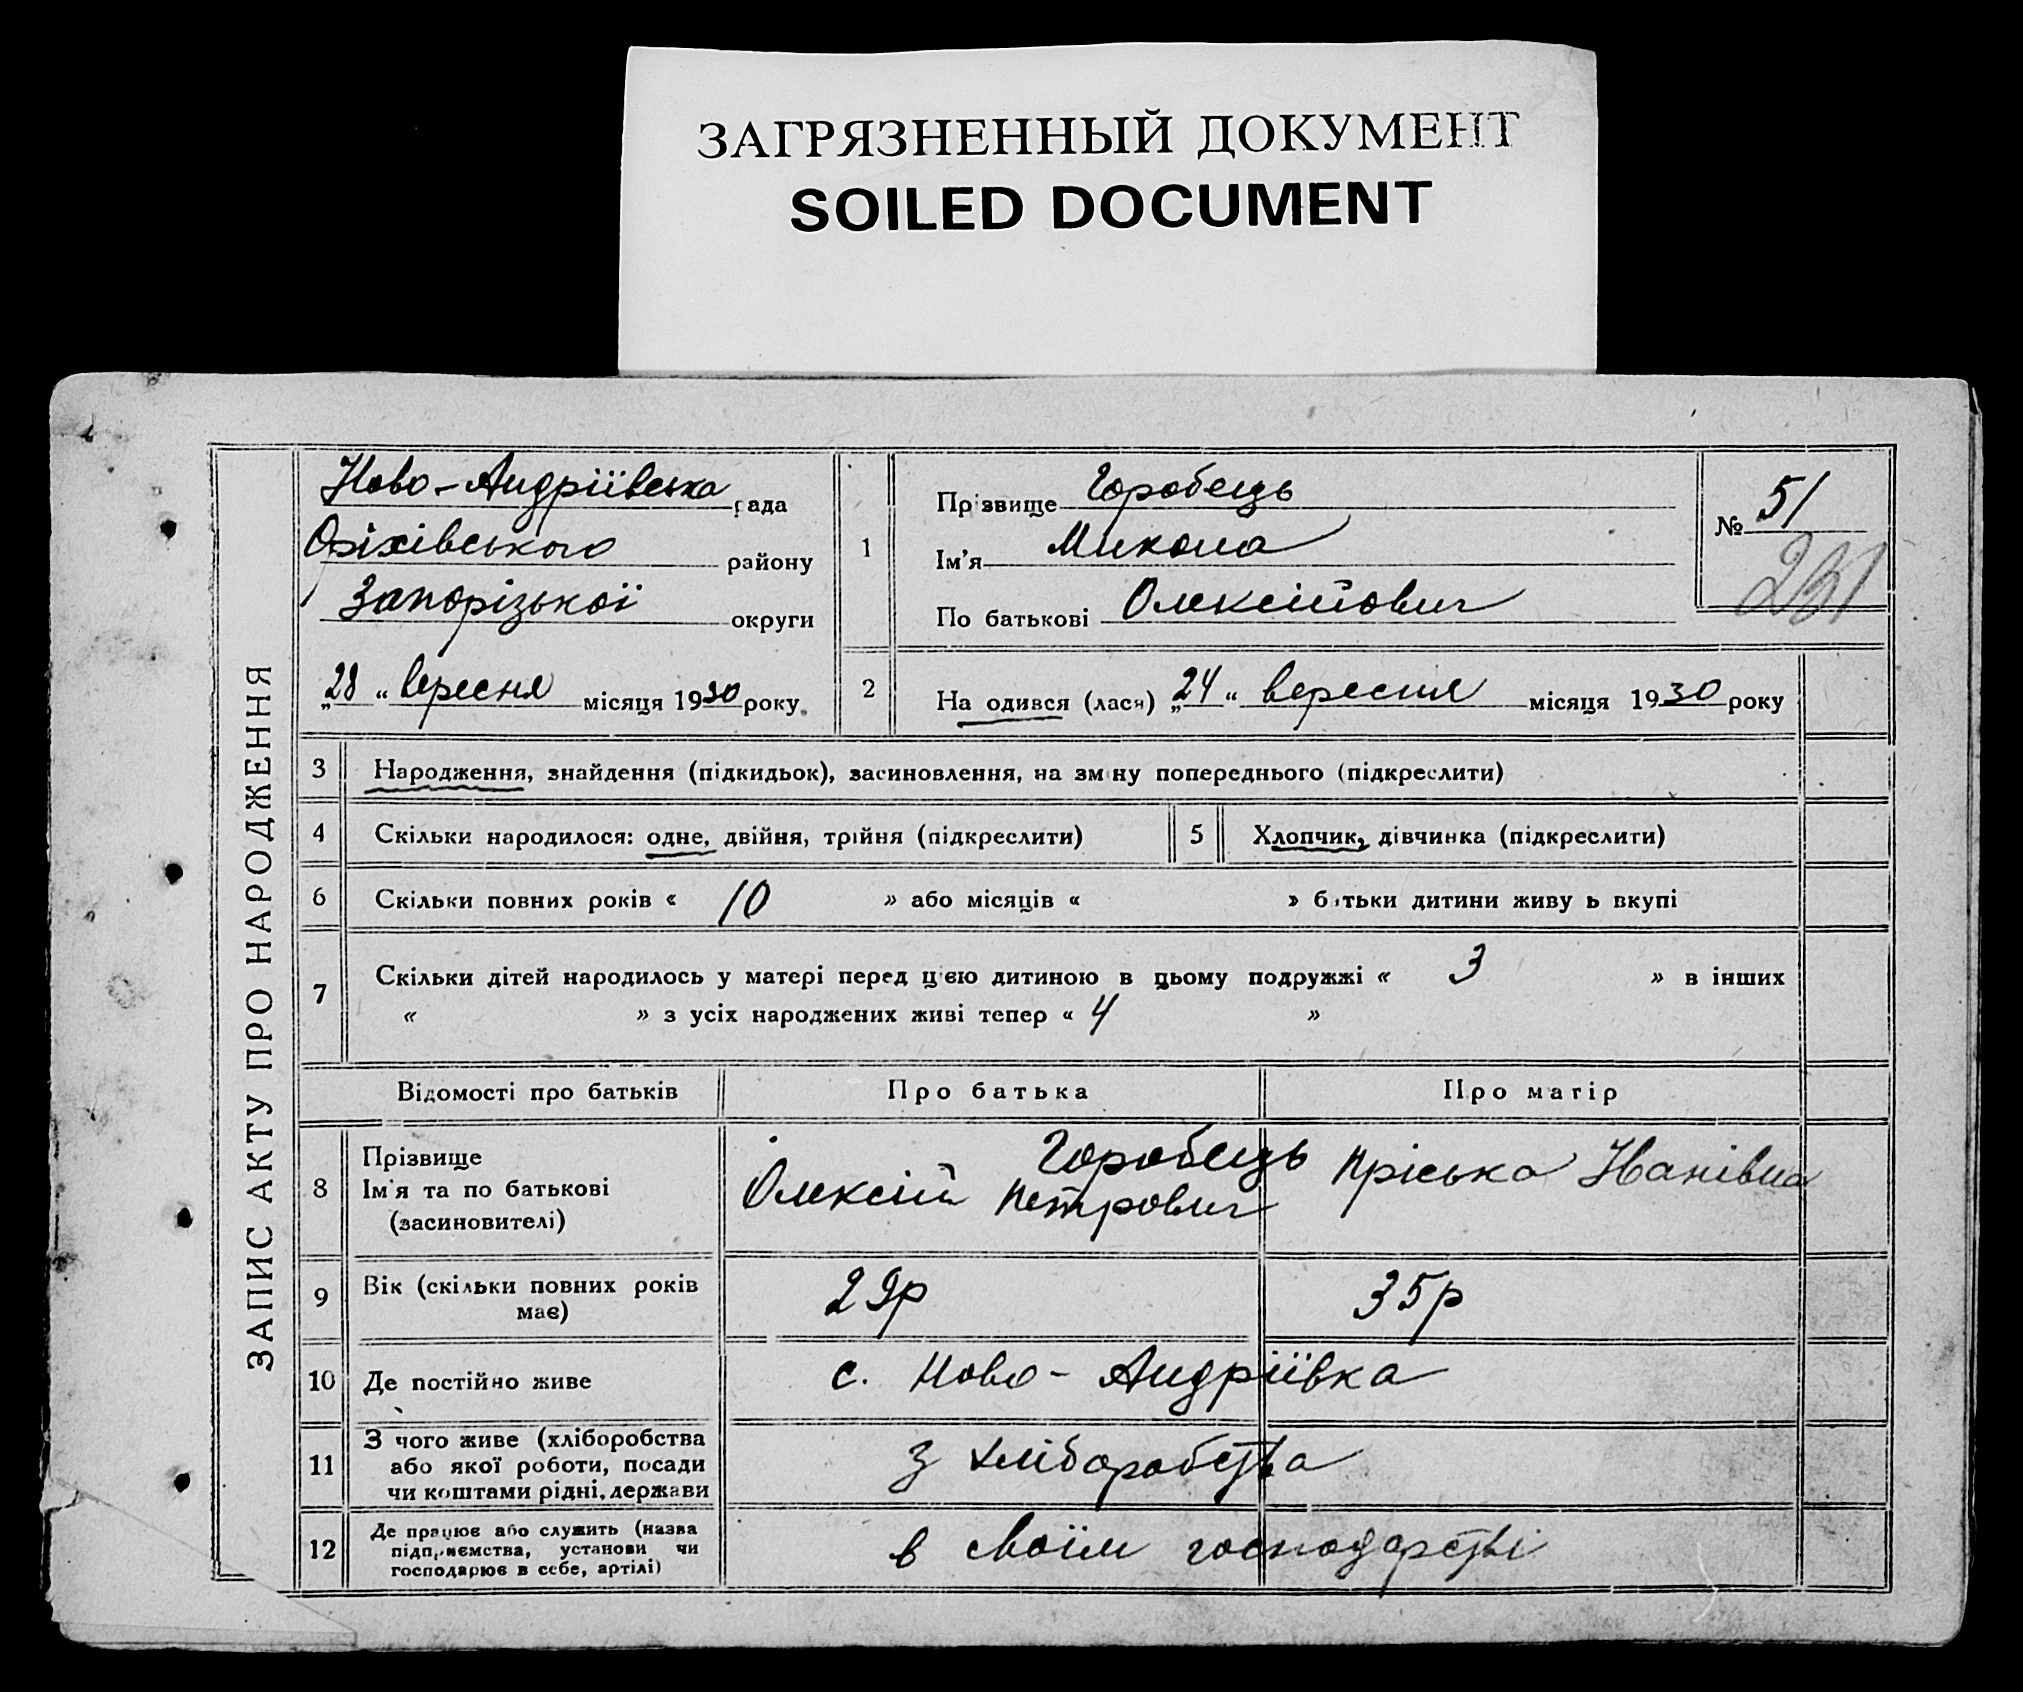 ЗАГРЯЗНЕННЫЙ ДОКУМЕНТ
SOILED DOCUMENT
ЗАПИС АКТУ ПРО НАРОДЖЕННЯ
Ново-Андріївська рада
Оріхівського району
Запорізької округи
„28 “ вересня місяця 1930 року.
1
Прізвище Горобець
Ім'я Микола
По батькові Олексійович
№ 51
231
2
На одився (лася) „24 “ вересня місяця 1930 року
3 Народження, знайдення (підкидьок), засиновлення, на зміну попереднього (підкреслити)
4 Скільки народилося: одне, двійня, трійня (підкреслити)
5 Хлопчик, дівчинка (підкреслити)
6 Скільки повних років « 10 » або місяців « » батьки дитини живу ь вкупі
7 Скільки дітей народилось у матері перед цією дитиною в цьому подружжі « 3 » в інших
« » з усіх народжених живі тепер « 4 »
Відомості про батьків Про батька Про матір
8 Прізвище
Ім'я та по батькові
(засиновителі)
Горобець
Олексій Петрович
Пріська Іванівна
9 Вік (скільки повних років
має)
29р 35р
10 Де постійно живе с. Ново-Андріївка
11 З чого живе (хліборобства
або якої роботи, посади
чи коштами рідні, держави
з хліборобства
12 Де працює або служить (назва
підприємства, установи чи
господарює в себе, артілі)
в своїм господарстві